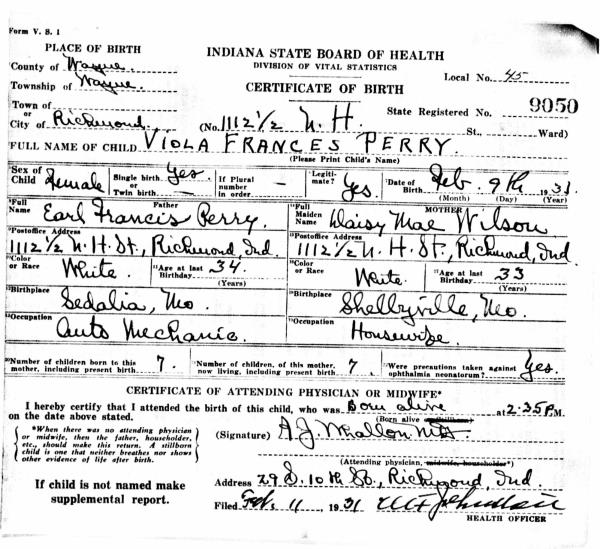 Form V. S. 1
PLACE OF BIRTH
INDIANA STATE BOARD OF HEALTH
DIVISION OF VITAL STATISTICS
County of Wayne
Local No. 45
Township of Wayne
CERTIFICATE OF BIRTH
Town of
or
State Registered No. 9050
City of Richmond (No. 1112 1/2 N. H. St., Ward)
FULL NAME OF CHILD VIOLA FRANCES PERRY
(Please Print Child's Name)
Sex of Child Female Single birth Yes or Twin birth — If Plural number in order — Legitimate? Yes Date of Birth Feb. 9th 1931
(Month) (Day) (Year)
Full Name Father Earl Francis Perry
Full Maiden Name MOTHER Daisy Mae Wilson
Postoffice Address 1112 1/2 N. H. St., Richmond, Ind
Postoffice Address 1112 1/2 N. H. St., Richmond, Ind.
Color or Race White Age at last Birthday 34 (Years)
Color or Race White Age at last Birthday 33 (Years)
Birthplace Sedalia, Mo
Birthplace Shelbyville, Mo.
Occupation Auto Mechanic.
Occupation Housewife.
Number of children born to this mother, including present birth 7. Number of children, of this mother, now living, including present birth 7 Were precautions taken against ophthalmia neonatorum? Yes.
CERTIFICATE OF ATTENDING PHYSICIAN OR MIDWIFE*
I hereby certify that I attended the birth of this child, who was Born alive at 2:35 P.M.
on the date above stated. (Born alive or Stillborn)
*When there was no attending physician
or midwife, then the father, householder,
etc., should make this return. A stillborn
child is one that neither breathes nor shows
other evidence of life after birth.
(Signature) A. J. Whallon MD
(Attending physician, midwife, householder*)
If child is not named make
supplemental report.
Address 29 S. 10th St., Richmond, Ind.
Filed Feb. 11, 1931
HEALTH OFFICER